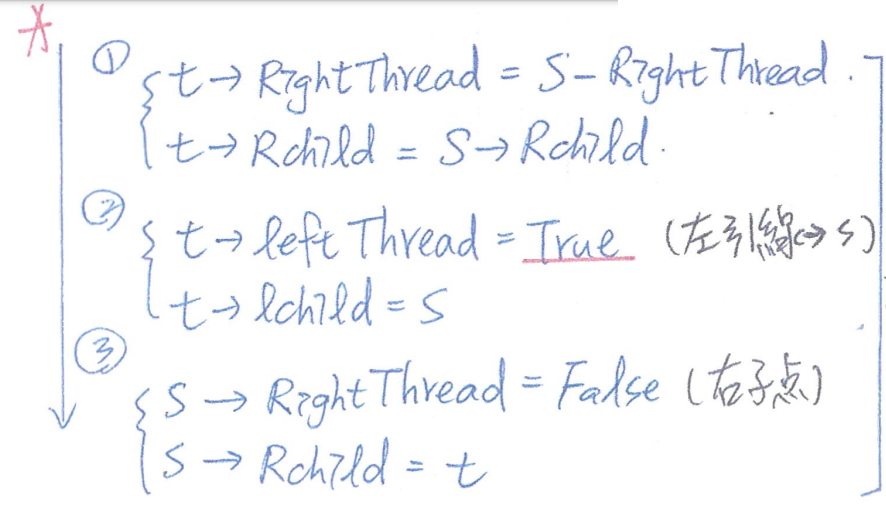 ① t → RightThread = S - RightThread.
t → Rchild = S → Rchild.
② t → leftThread = True (左引線↔s)
t → lchild = S
③
S → RightThread = False (右子点)
S → Rchild = t